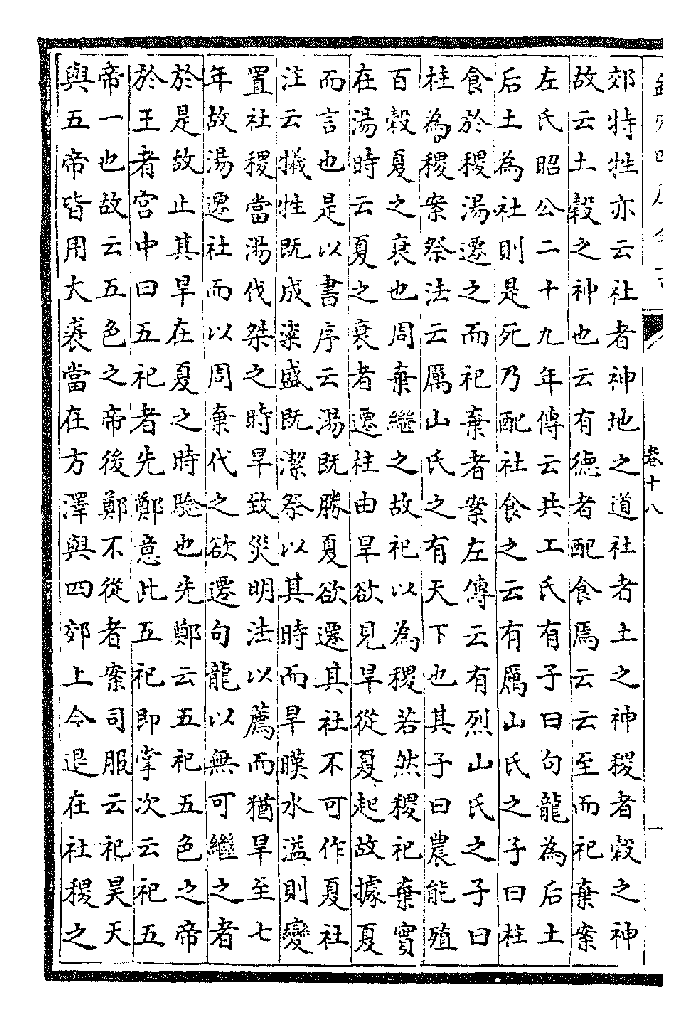 郊特牲亦云社者神地之道社者土之神稷者穀之神
故云土穀之神也云有德者配食焉云云至而祀棄案
左氏昭公二十九年傳云共工氏有子曰句龍為后土
后土為社則是死乃配社食之云有厲山氏之子曰柱
食於稷湯遷之而祀棄者案左傳云有烈山氏之子曰
柱為稷案祭法云厲山氏之有天下也其子曰農能殖
百穀夏之衰也周棄繼之故祀以為稷若然稷祀棄實
在湯時云夏之衰者遷柱由旱欲見旱從夏起故據夏
而言也是以書序云湯既勝夏欲遷其社不可作夏社
注云犠牲既成粢盛既潔祭以其時而旱暵水溢則變
置社稷當湯伐桀之時旱致災明法以薦而猶旱至七
年故湯遷社而以周棄代之欲遷句龍以無可繼之者
於是故止其旱在夏之時驗也先鄭云五祀五色之帝
於王者宮中曰五祀者先鄭意此五祀即掌次云祀五
帝一也故云五色之帝後鄭不從者案司服云祀昊天
與五帝皆用大裘當在方澤與四郊上今退在社稷之
卷十八
一